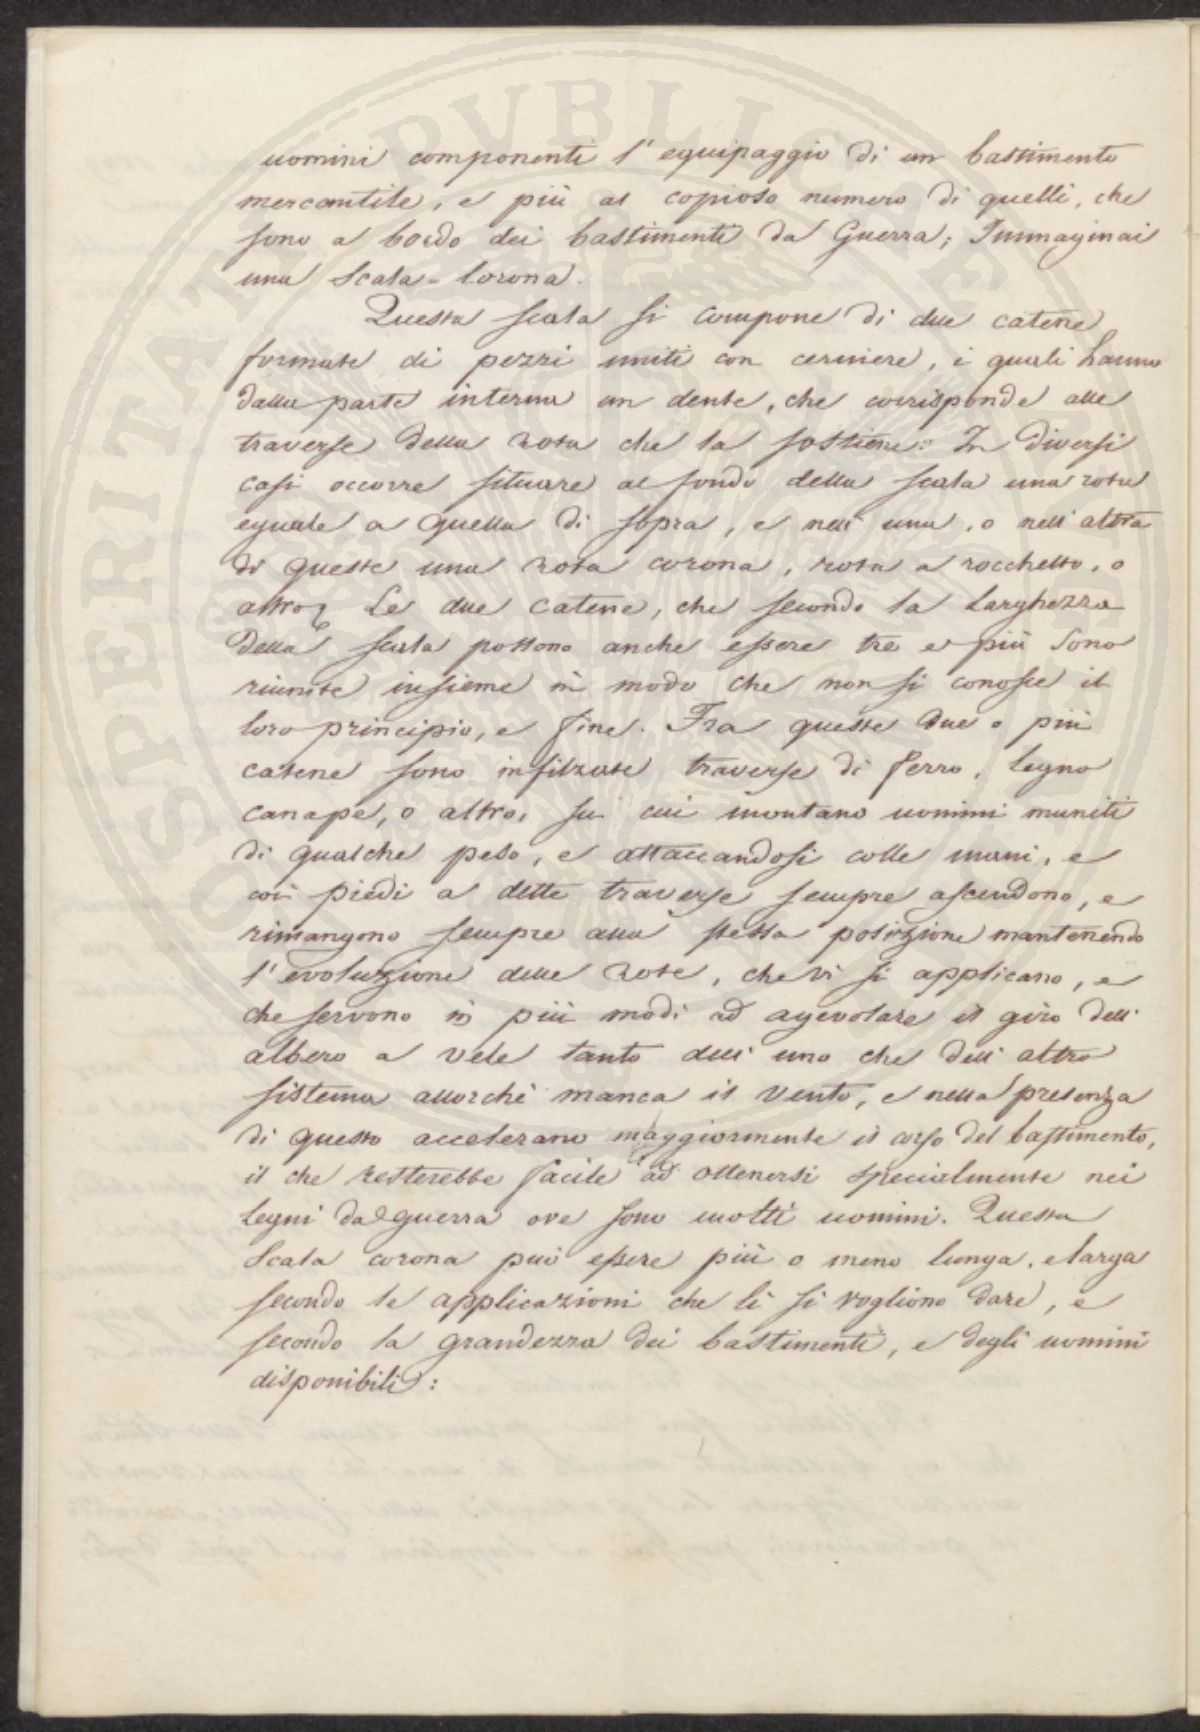 uomini componenti l'equipaggio di un bastimento
mercantile, e più al copioso numero di quelli, che
sono a bordo dei bastimenti da Guerra; Immaginai
una Scala-Corona.
Questa scala si compone di due catene
formate di pezzi uniti con cerniere, i quali hanno
dalla parte interna un dente, che corrisponde alle
traverse della rota che la sostiene: In diversi
casi occorre situare al fondo della scala una rota
eguale a quella di sopra, e nell'una, o nell'altra
di queste una rota corona, rota a rocchetto, o
altro. Le due catene, che secondo la larghezza
della scala possono anche essere tre e più sono
riunite insieme in modo che non si conosce il
loro principio, e fine. Fra queste due o più
catene sono infilzate traverse di ferro, legno
canape, o altro, su cui montano uomini muniti
di qualche peso, e attaccandosi colle mani, e
coi piedi a dette traverse sempre ascendono, e
rimangono sempre alla stessa posizione mantenendo
l'evoluzione delle rote, che vi si applicano, e
che servono in più modi ad agevolare il giro dell'
albero a vele tanto dell'uno che dell'altro
sistema allorchè manca il vento, e nella presenza
di questo accelerano maggiormente il corso del bastimento,
il che resterebbe facile ad ottenersi specialmente nei
legni da guerra ove sono molti uomini. Questa
Scala corona può essere più o meno lunga, e larga
secondo le applicazioni che li si vogliono dare, e
secondo la grandezza dei bastimenti, e degli uomini
disponibili:
SPERITATI PUBLICAE